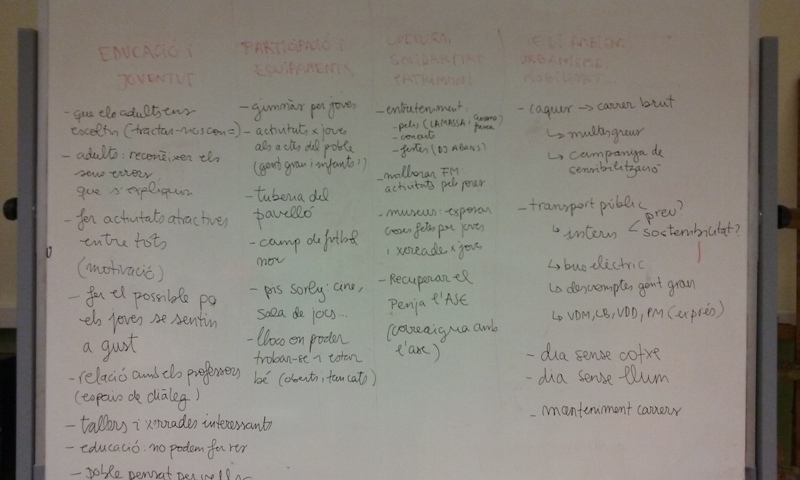 EDUCACIÓ I
JOVENTUT
- que els adults ens
escoltin (tractar-nos com =)
- adults: reconèixer els
seus errors
que s'expliquin
- fer activitats atractives
entre tots
(motivació)
- fer el possible pq
els joves se sentin
a gust
- relació amb els professors
(espais de diàleg)
- tallers i xerrades interessants
- educació. no podem fer res
- poble pensat per vells
PARTICIPACIÓ I
EQUIPAMENTS
- gimnàs per joves
- activitats x joves
als actes del poble
(gent gran i infants!)
- tuberia del
pavelló
- camp de futbol
nou
- pis sorli: cine,
sala de jocs...
- llocs on poder
trobar-se i estar
bé (oberts i tancats)
CULTURA,
SOLIDARITAT
PATRIMONI
- entreteniment:
- pelis (LA MASSA i
- concerts
- festes (DJ
- millorar FM
activitats pels joves
- museus: exposar
coses fetes per joves
i xerrades x joves
- Recuperar el
Penja l'ASE
(correaigua amb
l'ase)
MEDI AMBIENT
URBANISME
MOBILITAT...
- caques → carrer brut
↳ multes greus
↳ campanya de
sensibilització
- transport públic
preu?
↳ intern < sostenibilitat?
↳ bus elèctric
↳ descomptes gent gran
↳ VDM, CB, VDD, PM (exprés)
- dia sense cotxe
- dia sense llum
- manteniment carrers